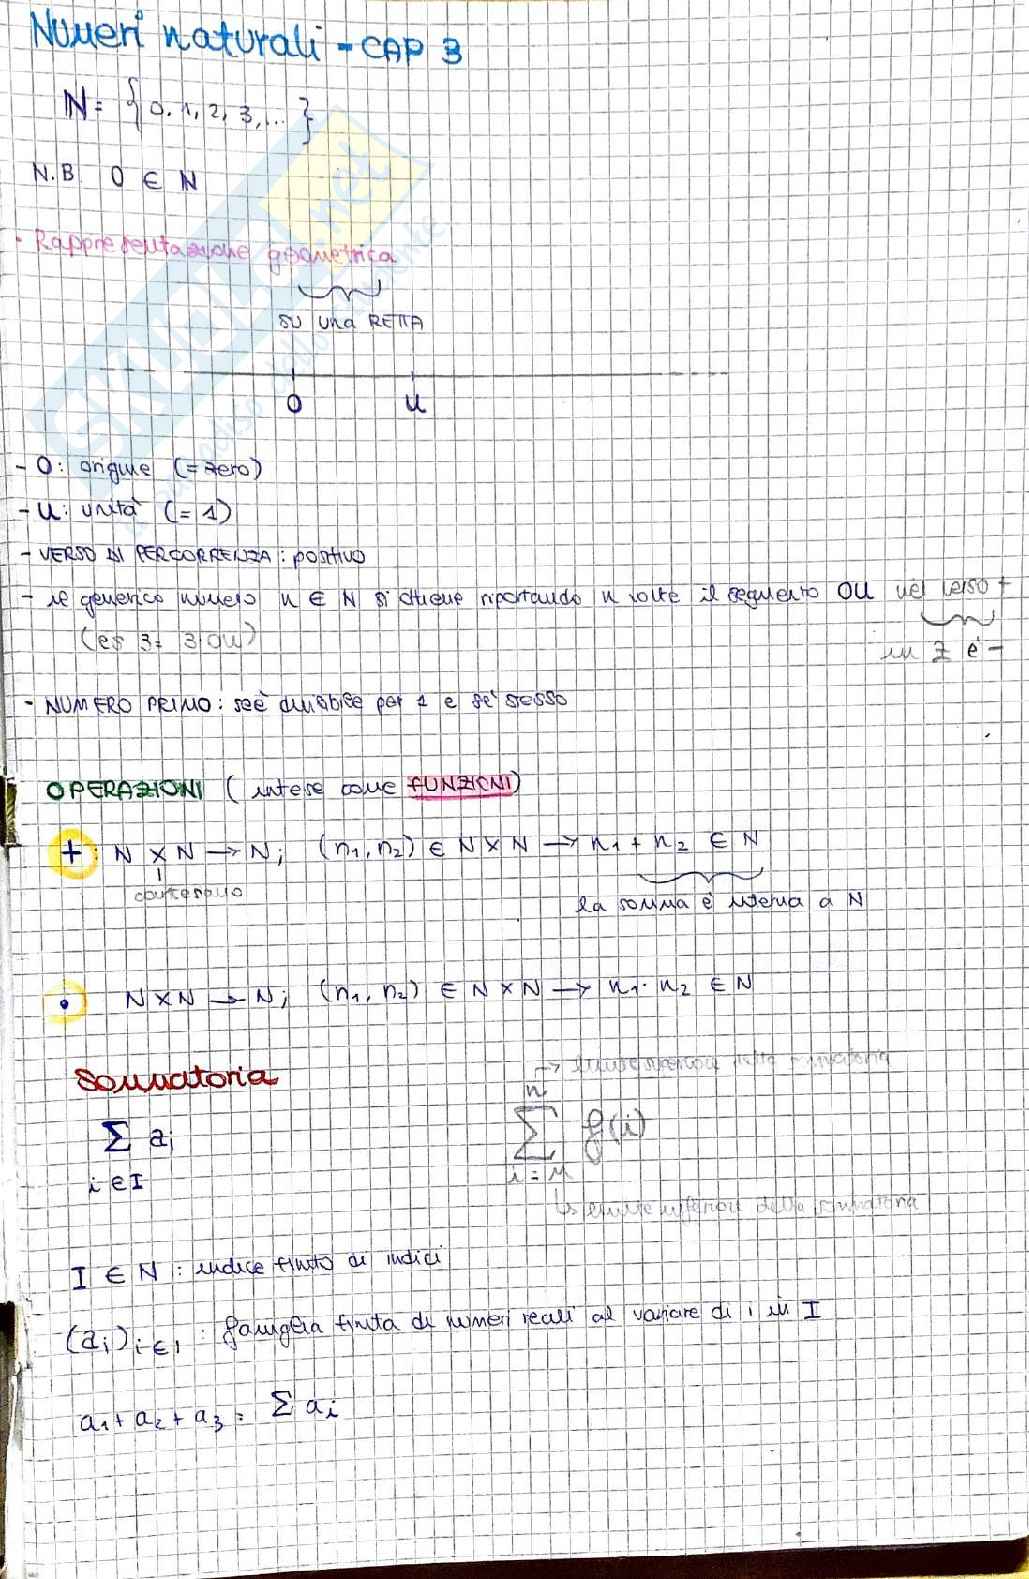 Numeri naturali - CAP 3
N = {0, 1, 2, 3, ...}
N.B 0 ∈ N
· Rappresentazione geometrica
su una RETTA
O U
- O: origine (= zero)
- U: unità (= 1)
- VERSO DI PERCORRENZA: positivo
- il generico numero n ∈ N si ottiene riportando n volte il segmento OU nel verso +
(es 3 = 3·OU)
in Z è -
- NUMERO PRIMO: se è divisibile per 1 e se' stesso
OPERAZIONI (intese come FUNZIONI)
+ : N × N → N; (n₁, n₂) ∈ N × N → n₁ + n₂ ∈ N
cartesiano
la somma è interna a N
· N × N → N; (n₁, n₂) ∈ N × N → n₁ · n₂ ∈ N
Sommatoria
→ limite superiore della sommatoria
n
Σ aᵢ Σ f(i)
i ∈ I i = m
↳ limite inferiore della sommatoria
I ∈ N : indice finito di indici
(aᵢ)ᵢ∈I : famiglia finita di numeri reali al variare di i in I
a₁ + a₂ + a₃ = Σ aᵢ
SKUOLA.net